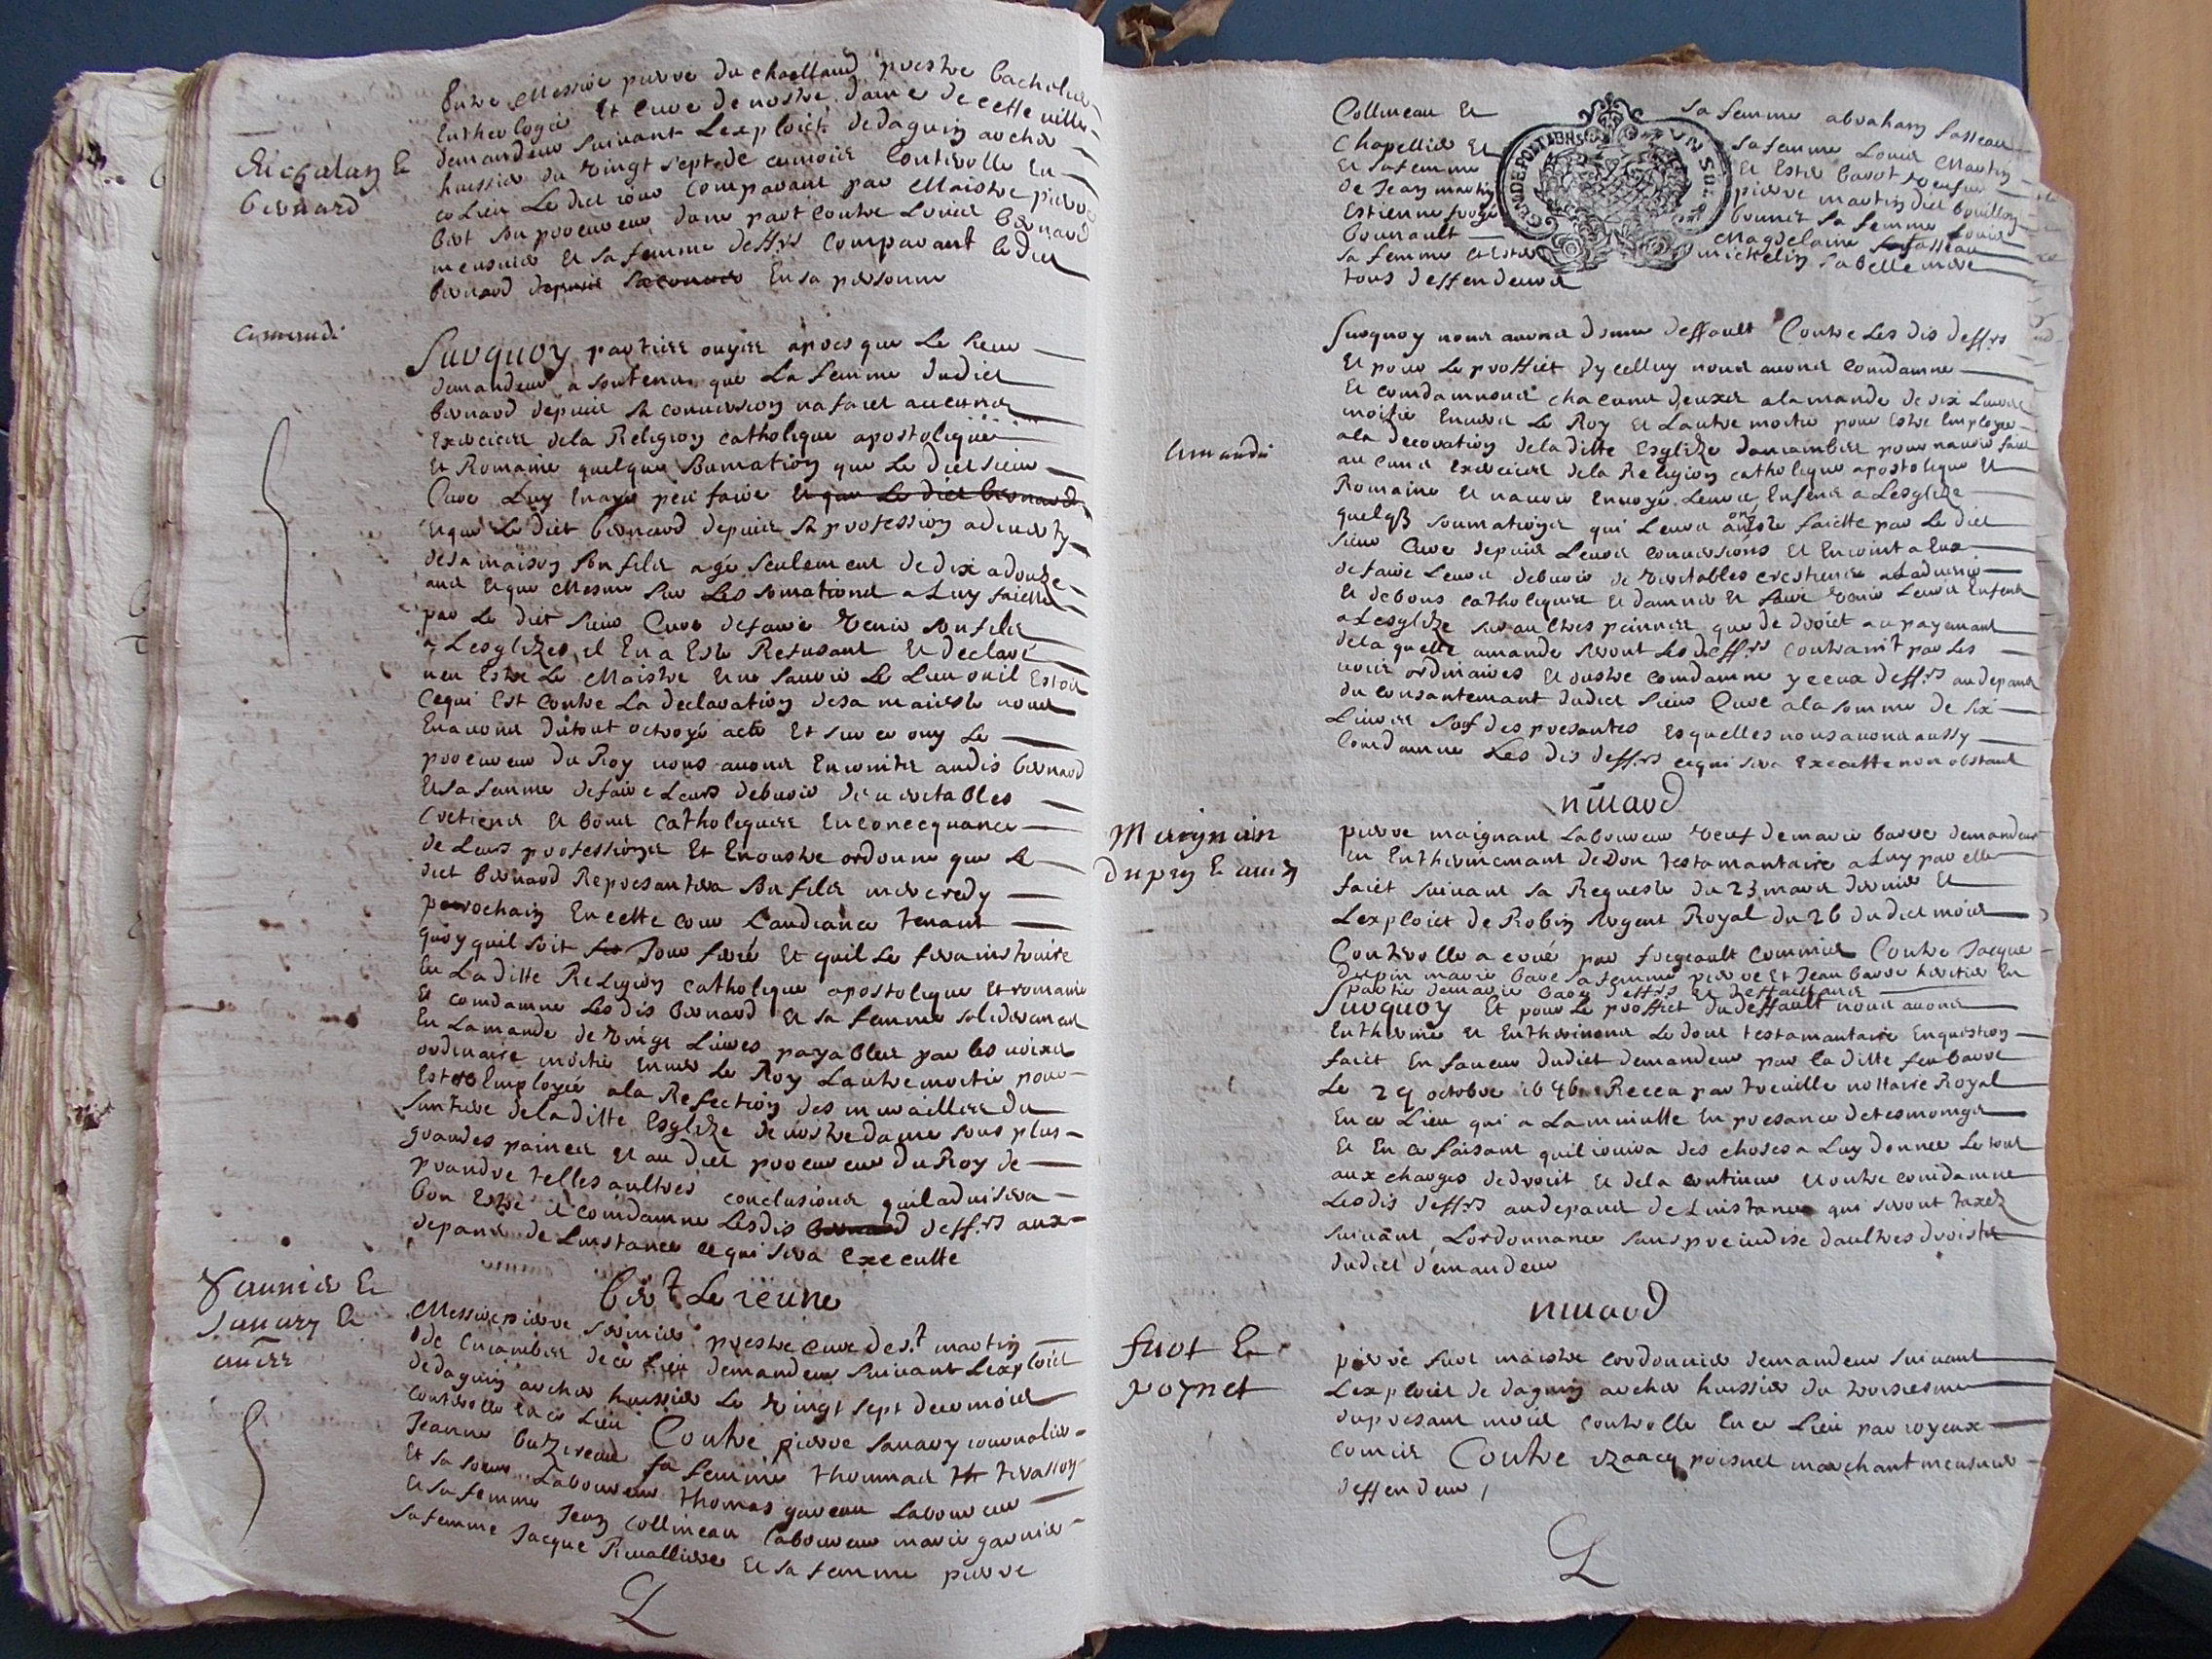 Entre Messire pierre du chaellaud prestre bachelier
Entheologie Et Cure de nostre dame de cette ville
demandeur suivant Lexploict dedaguin archer
huissier du vingt sept de ce mois Controlle En
ce Lieu Le dict iour Comparant par Maistre pierre
birt son procureur dune part Contre Louis bernard
meusnier Et sa femme deffrs Comparant le dict
bernard En sa personne
bernard
amende
Surquoy parties ouyes apres que Le sieur
demandeur a soutenu que La femme dudict
bernard depuis sa conversion na faict aucuns
Exercices dela Religion catholique apostolique
Et Romaine quelque somation que Le dict sieur
Cure Luy En aye peu faire Et que Le dict bernard
Et que Le dict bernard depuis sa profession adiverty
desa maison son fils agé seulement de dix adouze
ans Et que Mesme sur Les somations a Luy faictes
par Le dict sieur Cure defaire venir son fils
a Lesglize il En a Este Refusant Et declaré
nen Estre Le Maistre Et ne savoir Le Lieu ouil Estoit
Cequi Est Contre La declaration desa maieste nous
Enavons du tout octroyé acte Et sur ce ouy Le
procureur du Roy nous avons Enioint audis bernard
Et sa femme defaire Leurs debvoir de veritables
Cretiens Et bons Catholiques En consequance
de Leurs professions Et En oustre ordonne que Le
dict bernard Representera son fils mercredy
prochain En cette cour Laudiance tenant
quoy quil soit Jour ferié Et quil Le fera instruire
En La ditte Religion catholique apostolique Et romaine
Et comdamne Les dis bernard Et sa femme solidairement
En Lamande de vingt Livres payables par les voixes
ordinaire moitié Envers Le Roy Lautre moitié pour
Estre Employée ala Refection des murailles du
santuere dela ditte Esglize de nostre dame sous plus
grandes paines Et au dict procureur du Roy de
prandre telles aultres conclusions quil advisera
bon Estre Et comdamne Lesdis deffrs aux
depans de Linstance ce qui sera Executte
birt Le ieune
fournier Et
sanary Et
autres
Messire pierre fournier prestre cure de st martin
de Encambier dece Lieu demandeur suivant Lexploict
dedaguin archer huissier Le vingt sept dece mois
Controlle En ce Lieu Contre pierre sanary iournalier
Jeanne sa femme thommas
Et sa soeur Laboureur thomas gareau Laboureur
Et sa femme Jean Collineau Laboureur marie garnier
sa femme Jacque Rivallier Et sa femme pierre
Collineau Et sa femme abraham fasseau
Chapellier Et sa femme Louis Martin
Et sa femme Et Ester
de Jean martin pierre martin dict bouillon
Estienne sa femme Louis
bounault Magdelaine fasseau
sa femme Et Ester michelin sa belle mere
tous deffendeurs
GEN DE POITIERS UN SOL
Surquoy nous avons donne deffault Contre Les dis deffrs
Et pour Le proffict dycelluy nous avons comdamne
Et comdamnons chacuns deux alamande de dix Livres
moitié Envers Le Roy Et Lautre moitie pour Estre Employee
ala decoration dela ditte Esglize pour navoir faict
aucuns Exercices dela Religion catholique apostolique Et
Romaine Et navoir Envoyé Leurs Enfens a Lesglize
quelqs somations qui Leurs ont Este faicte par Le dict
sieur Cure depuis Leurs conversions Et Enioint a Eux
defaire Leurs debvoir de veritables crestiens aLadvenir
Et debons catholiques Et damner Et faire venir Leurs Enfens
a Lesglize sur aultres peinnes que de droict au payemant
dela quelle amande seront Les deffrs Contraint par Les
voies ordinaires Et oustre comdamne yceux deffrs au depans
du consantemant dudict sieur Cure ala somme de six
Livres sof des presantes Esquelles nous avons aussy
Comdamne Les dis deffrs cequi sera Executte non obstant
amande
nivard
Maignan
dupin Et autres
pierre maignant Laboureur veuf de marie barre demandeur
En Entherinemant de Don testamantaire a Luy par elle
faict suivant sa Requeste du 23 mars dernier Et
Lexploict de Robin sergent Royal du 26 dudict mois
Controlle a par forgeault Commis Contre Jacque
dupin marie bare sa femme pierre Et Jean barre heritier En
partie demarie bare deffrs Et deffaillans
Surquoy Et pour Le proffict dudeffault nous avons
Entherine Et Entherinons Le dont testamantaire En question
faict En faveur dudict demandeur par la ditte feu barre
Le 29 octobre 1696 Receu par treuille nottaire Royal
En ce Lieu qui a La minutte En presance detesmoings
Et En ce faisant quil iouira des choses a Luy donnee Le tout
aux charges de droict Et dela continue Et outre comdamne
Lesdis deffrs au depans de Linstance qui seront taxez
suivant Lordonnance sans preiudise daultres droicts
dudict demandeur
nivard
fuot Et
poynet
pierre fuot maistre cordonnier demandeur suivant
Lexploict de daguin archer huissier du troisiesme
dupresant mois controlle En ce Lieu par royeux
Commis Contre Izaacq poisnet marchant meusnier
deffendeur